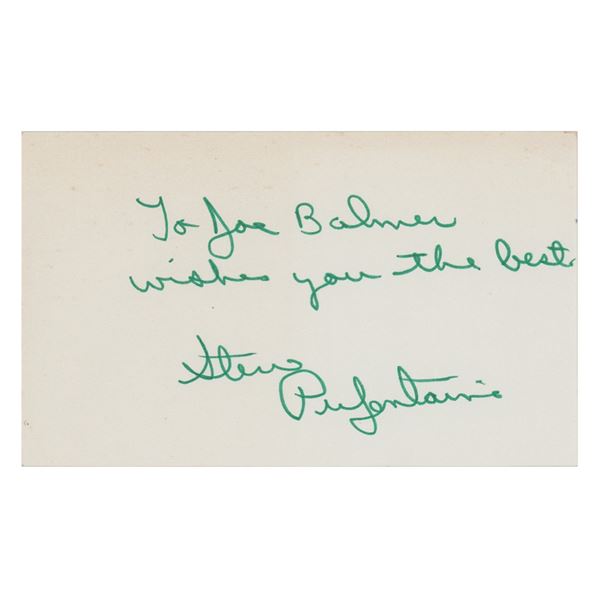 To Joe Balmer
wishes you the best
Steve
Prefontaine